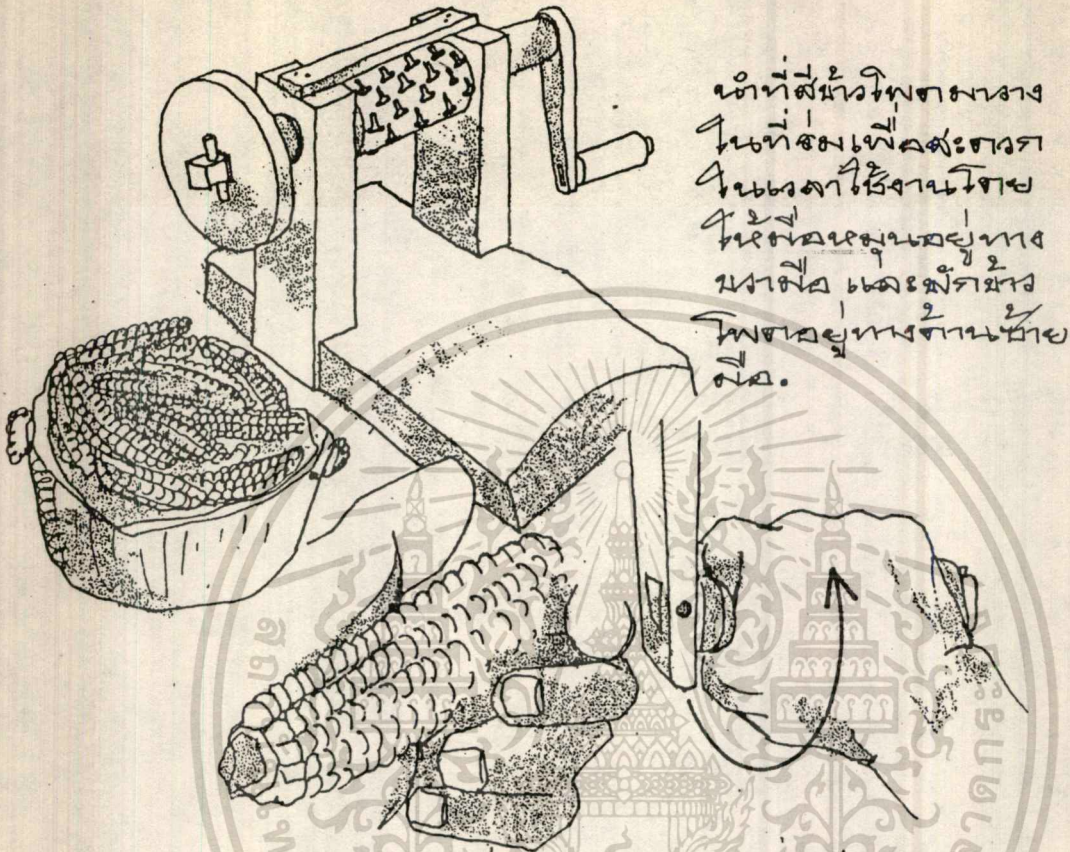 นำที่สีข้าวโพดมาวาง
ในที่ร่มเพื่อสะดวก
ในเวลาใช้งานโดย
ให้มือหมุนอยู่ทาง
ขวามือ และฝักข้าว
โพดอยู่ทางด้านซ้าย
มือ.